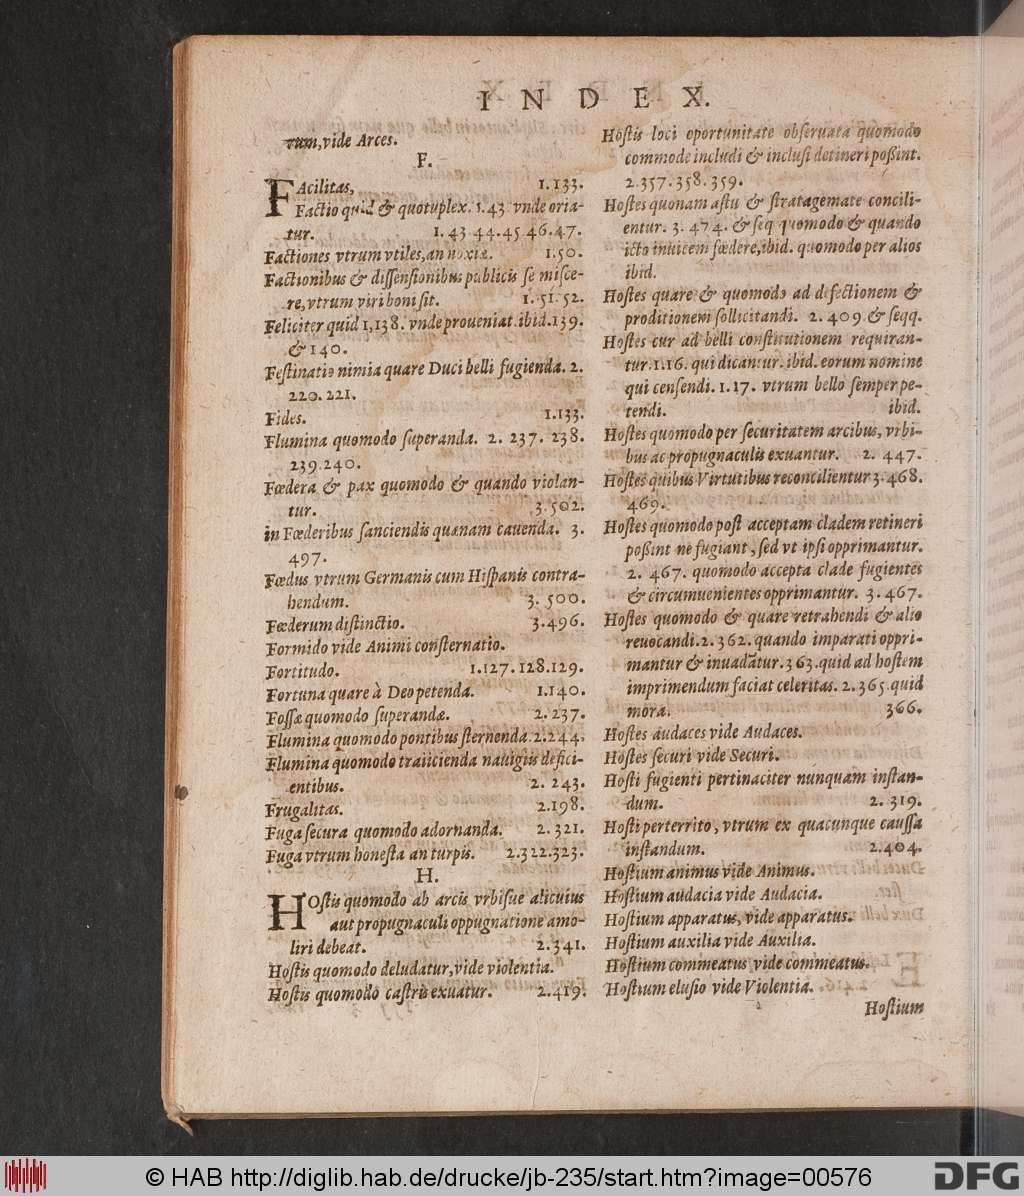 INDEX.
rum, vide Arces.
F.
FAcilitas, 1.133.
Factio quid & quotuplex. 1.43 vnde oria-
tur. 1. 43 44.45 46.47.
Factiones vtrum vtiles, an noxiæ. 1.50.
Factionibus & dissensionibus publicis se misce-
re, vtrum viri boni sit. 1.51.52.
Feliciter quid 1,138. vnde proueniat. ibid.139.
& 140.
Festinatio nimia quare Duci belli fugienda. 2.
220. 221.
Fides. 1.133.
Flumina quomodo superanda. 2. 237. 238.
239.240.
Fœdera & pax quomodo & quando violan-
tur. 3.502.
in Fœderibus sanciendis quænam cauenda. 3.
497.
Fœdus vtrum Germanis cum Hispanis contra-
hendum. 3. 500.
Fœderum distinctio. 3.496.
Formido vide Animi consternatio.
Fortitudo. 1.127.128.129.
Fortuna quare à Deo petenda. 1.140.
Fossæ quomodo superandæ. 2.237.
Flumina quomodo pontibus sternenda. 2.244.
Flumina quomodo traiicienda nauigiis defici-
entibus. 2. 243.
Frugalitas. 2.198.
Fuga secura quomodo adornanda. 2. 321.
Fuga vtrum honesta an turpis. 2.322.323.
H.
HOstis quomodo ab arcis vrbisue alicuius
aut propugnaculi oppugnatione amo-
liri debeat. 2.341.
Hostis quomodo deludatur, vide violentia.
Hostis quomodo castris exuatur. 2.419.
Hostis loci oportunitate obseruata quomodo
commode includi & inclusi detineri poßint.
2.357.358.359.
Hostes quonam astu & stratagemate concili-
entur. 3. 474. & seq quomodo & quando
icto inuicem fœdere, ibid. quomodo per alios
ibid.
Hostes quare & quomodo ad defectionem &
proditionem sollicitandi. 2. 409 & seqq.
Hostes cur ad belli constitutionem requiran-
tur.1.16. qui dicantur. ibid. eorum nomine
qui censendi. 1.17. vtrum bello semper pe-
tendi. ibid.
Hostes quomodo per securitatem arcibus, vrbi-
bus ac propugnaculis exuantur. 2. 447.
Hostes quibus Virtutibus reconcilientur 3.468.
469.
Hostes quomodo post acceptam cladem retineri
poßint ne fugiant, sed vt ipsi opprimantur.
2. 467. quomodo accepta clade fugientes
& circumuenientes opprimantur. 3.467.
Hostes quomodo & quare retrahendi & alio
reuocandi. 2. 362. quando imparati oppri-
mantur & inuadãtur. 363. quid ad hostem
imprimendum faciat celeritas. 2.365 quid
mora. 366.
Hostes audaces vide Audaces.
Hostes securi vide Securi.
Hosti fugienti pertinaciter nunquam instan-
dum. 2. 319.
Hosti perterrito, vtrum ex quacunque caussa
instandum. 2.404.
Hostium animus vide Animus.
Hostium audacia vide Audacia.
Hostium apparatus, vide apparatus.
Hostium auxilia vide Auxilia.
Hostium commeatus vide commeatus.
Hostium elusio vide Violentia.
Hostium
© HAB http://diglib.hab.de/drucke/jb-235/start.htm?image=00576
DFG